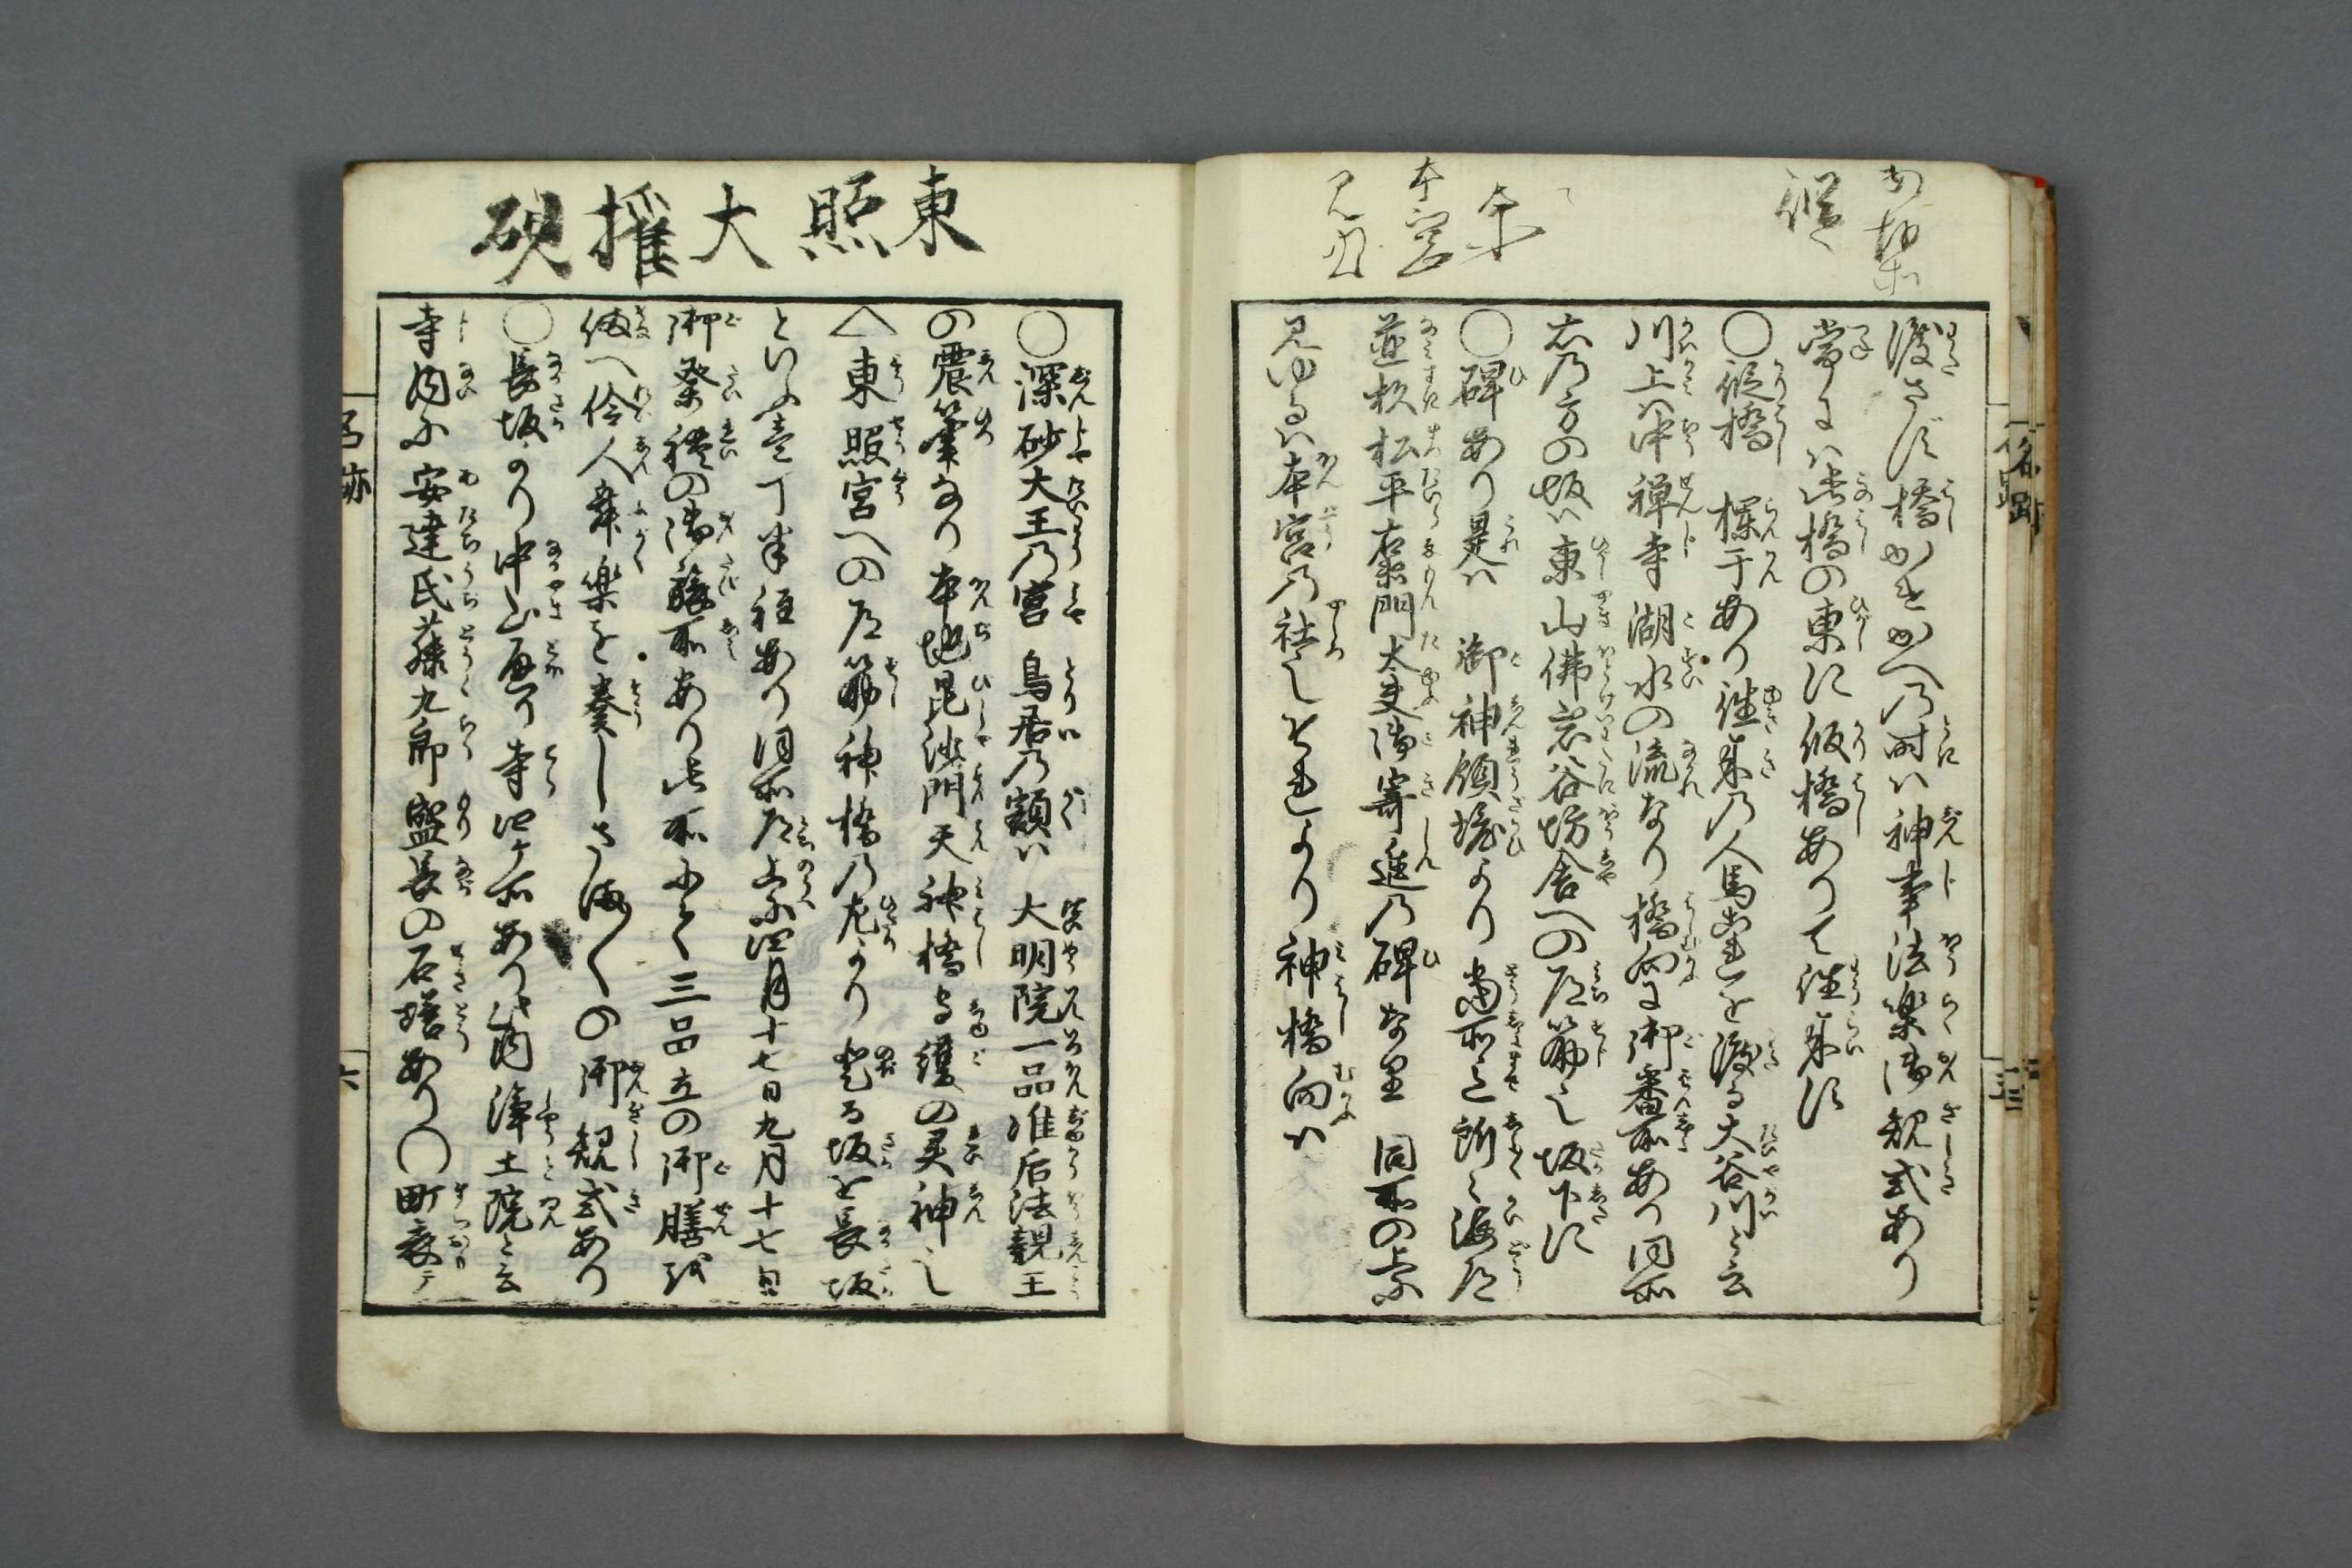 渡さず橋かけかへの時ハ神事法楽御規式あり
常にハ此橋の東に仮橋ありて往来す
○仮橋 欄干あり往来の人馬これを渡る大谷川と云
川上ハ中禅寺湖水の流なり橋向に御番所あり同所
右の方の坂ハ東山佛岩谷坊舎への道筋也坂下に
○碑あり是ハ 御神領境より当所迄所々海道
並杦松平右衛門太夫御寄進の碑なり 同所の上に
見ゆるハ本宮の社也それより神橋向ハ
東照大権現
○深砂大王の宮 鳥居の額ハ 大明院一品准后法親王
の震筆なり本地毘沙門天神橋守護の灵神也
△東照宮への道筋神橋の左より登る坂を長坂
といふ壱丁半程あり同所道上に四月十七日九月十七日
御祭礼の御旅所あり此所にて三品立の御膳を
備へ伶人舞楽を奏しさま〴〵の御規式あり
○長坂より中山通り寺四ケ所あり此内浄土院と云
寺内に安達氏藤九郎盛長の石塔あり○町表テ
名跡
六